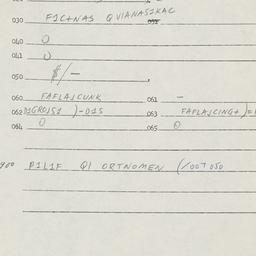 030 F1C+NAS QVIANASIKAC
040 0
041 0
050 $/-
060 FAFLAJCUNK 061 -
062 063 FAFLAJCING+
064 0 065 0
900 P1L1F QI ORTNOMEN (/007 050